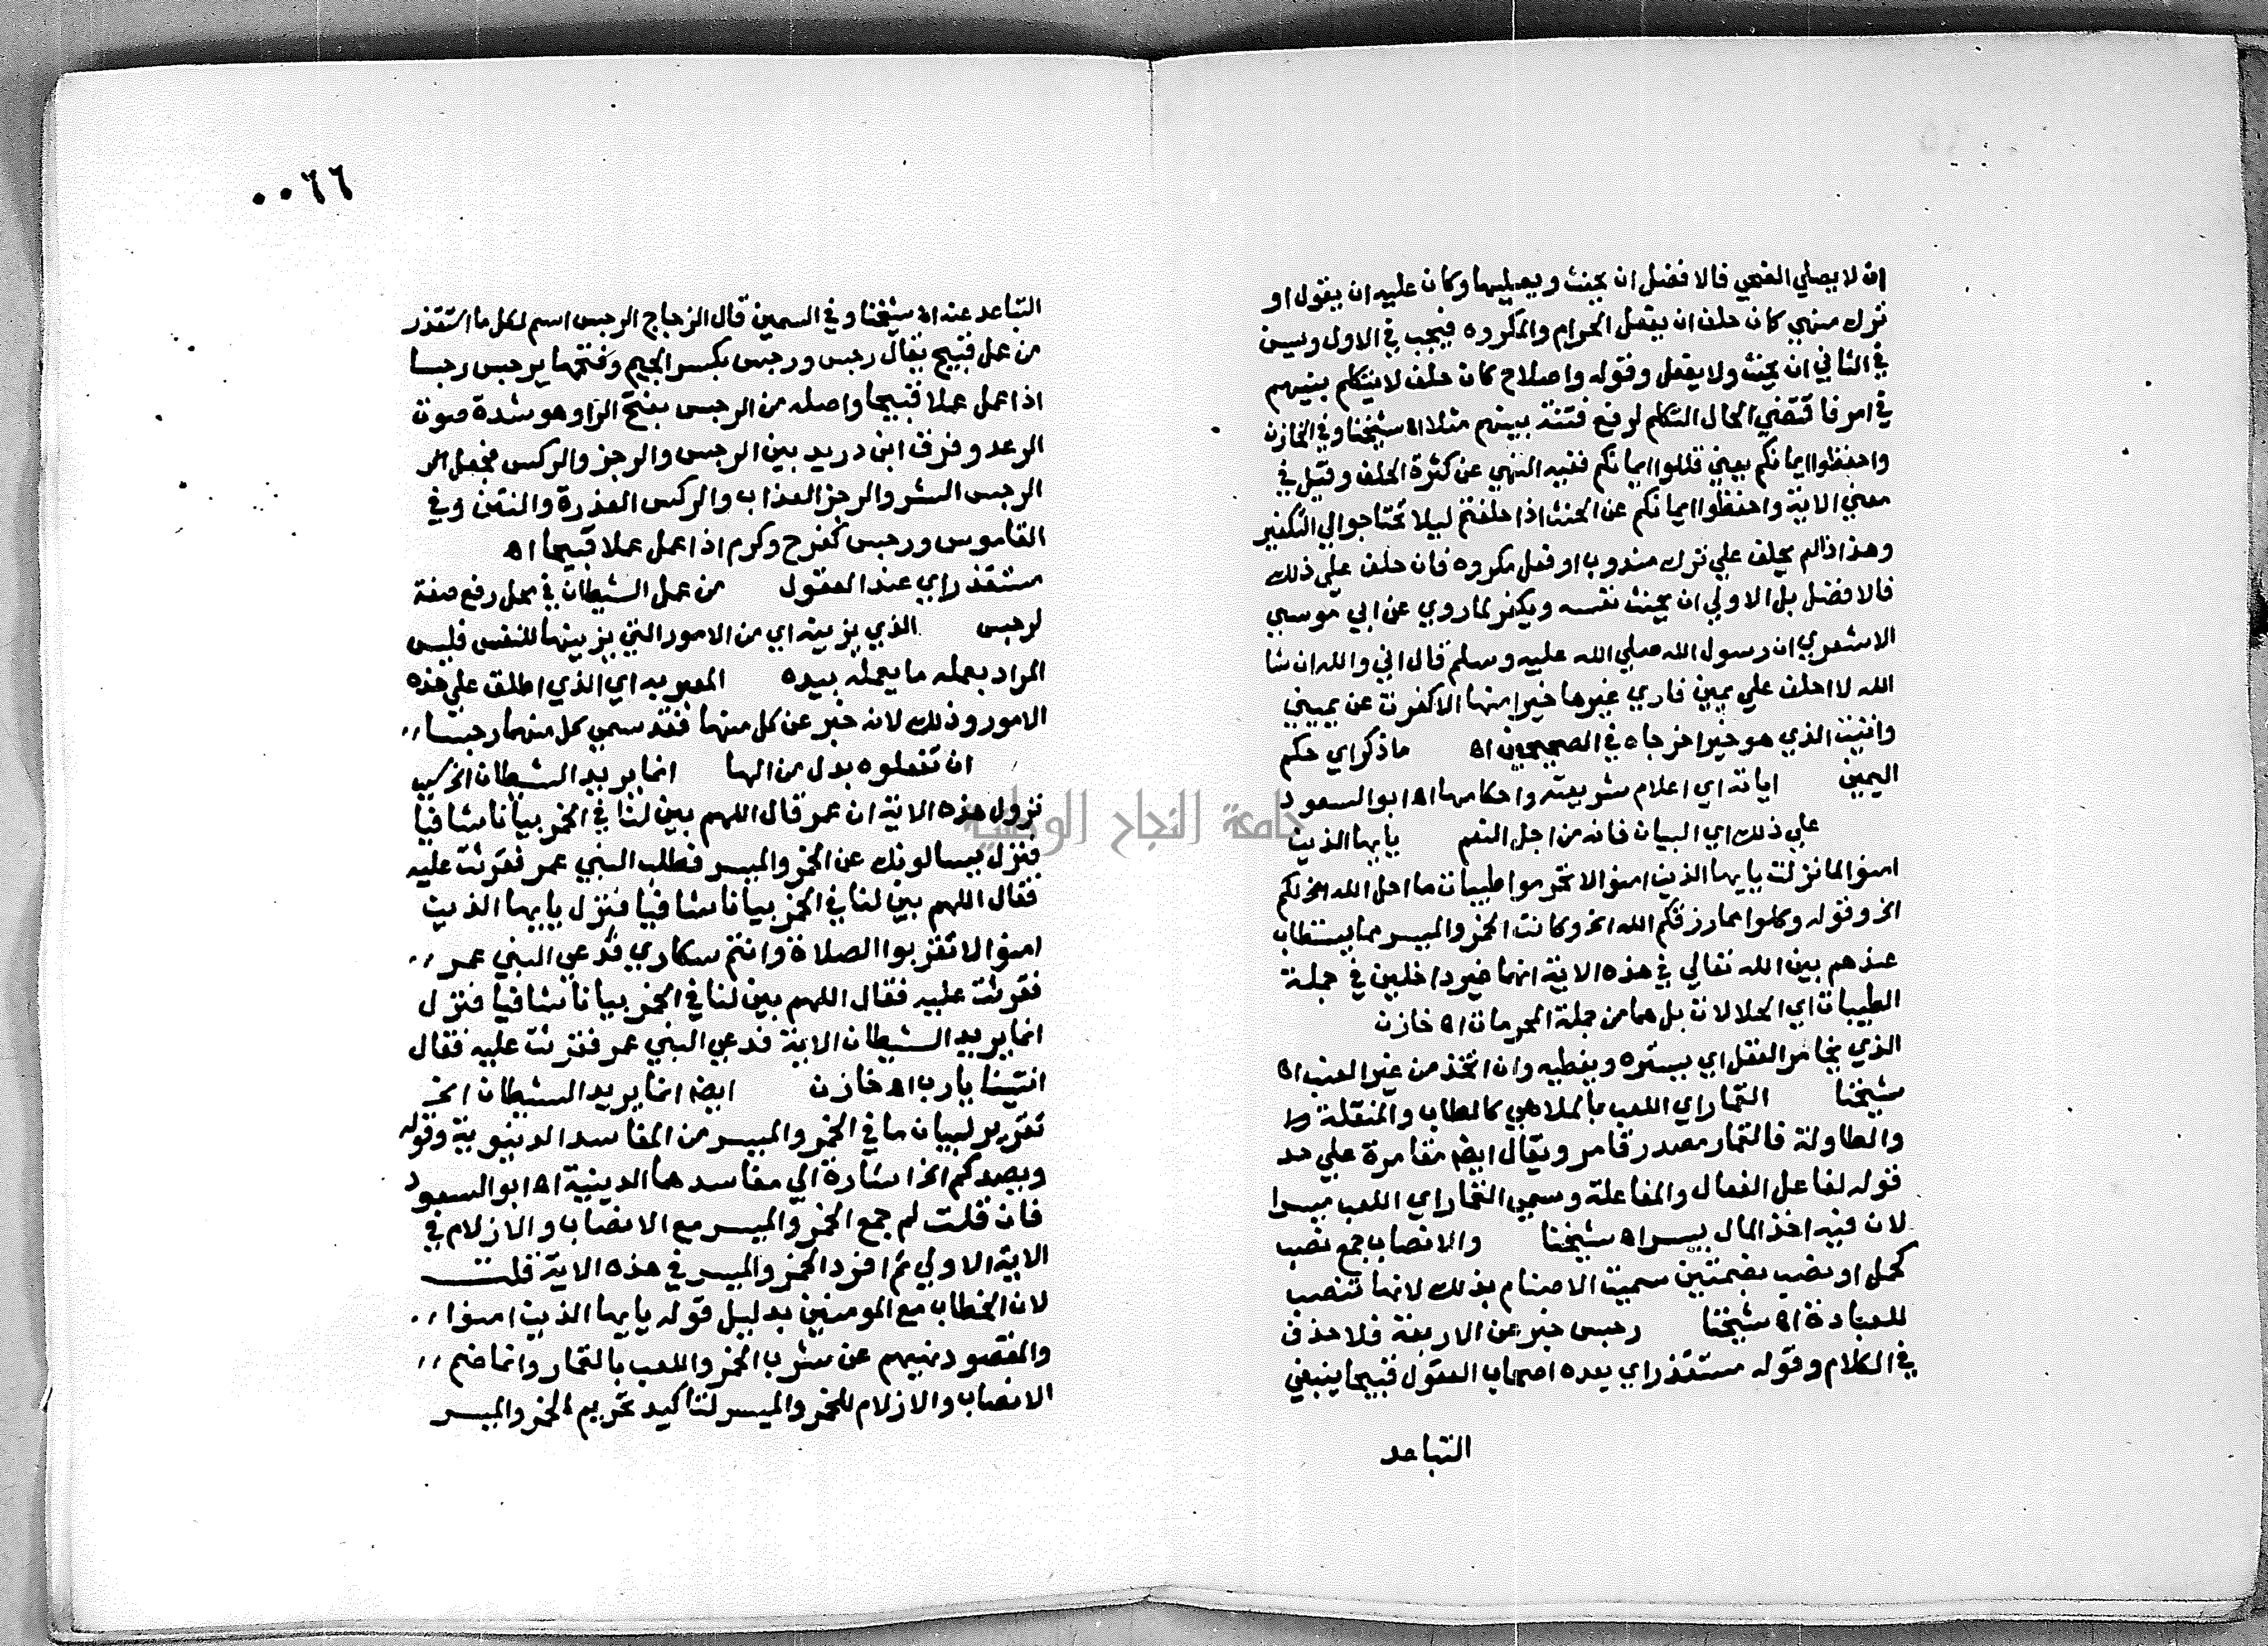 ان لا يصلي الضحي فالافضل ان يحنث ويصليها وكان عليه ان يقول او
ترك منهي كان حلف ان يفعل الحرام والمكروه فيجب في الاول ويسن
في الثاني ان يحنث ولا يفعل وقوله واصلاح كان حلف لا يتكلم بينهم
في امر فاقتضي الحال التكلم لرفع فتنة بينهم مثلا اه شيخنا وفي الخازن
واحفظوا ايمانكم يعني قللوا ايمانكم ففيه النهي عن كثرة الحلف وقيل في
معني الاية واحفظوا ايمانكم عن الحنث اذا حلفتم ليلا تحتاجوا الي التكفير
وهذا اذا لم يحلف علي ترك مندوب او فعل مكروه فان حلف علي ذلك
فالافضل بل الاولي ان يحنث نفسه ويكفر لما روي عن ابي موسي
الاشعري ان رسول الله صلي الله عليه وسلم قال اني والله ان شا
الله لا احلف علي يمين فاري غيرها خيرا منها الا كفرت عن يميني
واتيت الذي هو خير اخرجاه في الصحيحين اه ما ذكر اي حكم
اليمين اياته اي اعلام شريعته واحكامها اه ابو السعود
علي ذلك اي البيان فانه من اجل النعم يايها الذين
امنوا لما نزلت يايها الذين امنوا لا تحرموا طيبات ما احل الله لكم
الخ وقوله وكلوا مما رزقكم الله الخ وكانت الخمر والميسر مما يستطاب
عندهم بين الله تعالي في هذه الاية انهما غير داخلين في جملة
الطيبات اي الحلالات بل هما من جملة المحرمات اه خازن
الذي يخامر العقل اي يستره ويغطيه وان اتخذ من غير العنب اه
شيخنا القمار اي اللعب بالملاهي كالطاب والمنقلة
والطاولة فالقمار مصدر قامر ويقال ايضا مقامرة علي حد
قوله لفاعل الفعال والمفاعلة وسمي القمار اي اللعب ميسرا
لان فيه اخذ المال بيسر اه شيخنا والانصاب جمع نصب
كحمل او نصب بضمتين سميت الاصنام بذلك لانها تنصب
للعبادة اه شيخنا رجس خبر عن الاربعة فلا حذف
في الكلام وقوله مستقذر اي يعده اصحاب العقول قبيحا ينبغي
التباعد
٠٠٦٦
التباعد عنه اه شيخنا وفي السمين قال الزجاج الرجس اسم لكل ما استقذر
من عمل قبيح يقال رجس ورجس بكسر الجيم وفتحها يرجس رجسا
اذا عمل عملا قبيحا واصله من الرجس بفتح الرا وهو شدة صوت
الرعد وفرق ابن دريد بين الرجس والرجز والركس فجعل
الرجس الشر والرجز العذاب والركس العذرة والنتن وفي
القاموس ورجس كفرح وكرم اذا عمل عملا قبيحا اه
مستقذر اي عند العقول من عمل الشيطان في محل رفع صفة
لرجس الذي يزينه اي من الامور التي يزينها للنفس فليس
المراد بعمله ما يعمله بيده المعبر به اي الذي اطلق علي هذه
الامور وذلك لانه خبر عن كل منها فقد سمي كل منهما رجسا
ان تفعلوه بدل من الها انما يريد الشيطان الخ سبب
نزول هذه الاية ان عمر قال اللهم بين لنا في الخمر بيانا شافيا
فنزل يسالونك عن الخمر والميسر فطلب النبي عمر فقرئت عليه
فقال اللهم بين لنا في الخمر بيانا شافيا فنزل يايها الذين
امنوا لا تقربوا الصلاة وانتم سكاري فدعي النبي عمر
فقرئت عليه فقال اللهم بين لنا في الخمر بيانا شافيا فنزل
انما يريد الشيطان الاية فدعي النبي عمر فقرئت عليه فقال
انتهينا يارب اه خازن ايضا انما يريد الشيطان الخ
تقرير لبيان ما في الخمر والميسر من المفاسد الدنيوية وقوله
ويصدكم الخ اشارة الي مفاسدها الدينية اه ابو السعود
فان قلت لم جمع الخمر والميسر مع الانصاب والازلام في
الاية الاولي ثم افرد الخمر والميسر في هذه الاية قلت
لان الخطاب مع المومنين بدليل قوله يايها الذين امنوا
والمقصود نهيهم عن شرب الخمر واللعب بالقمار وانما ضم
الانصاب والازلام للخمر والميسر لتاكيد تحريم الخمر والميسر
جامعة النجاح الوطنية